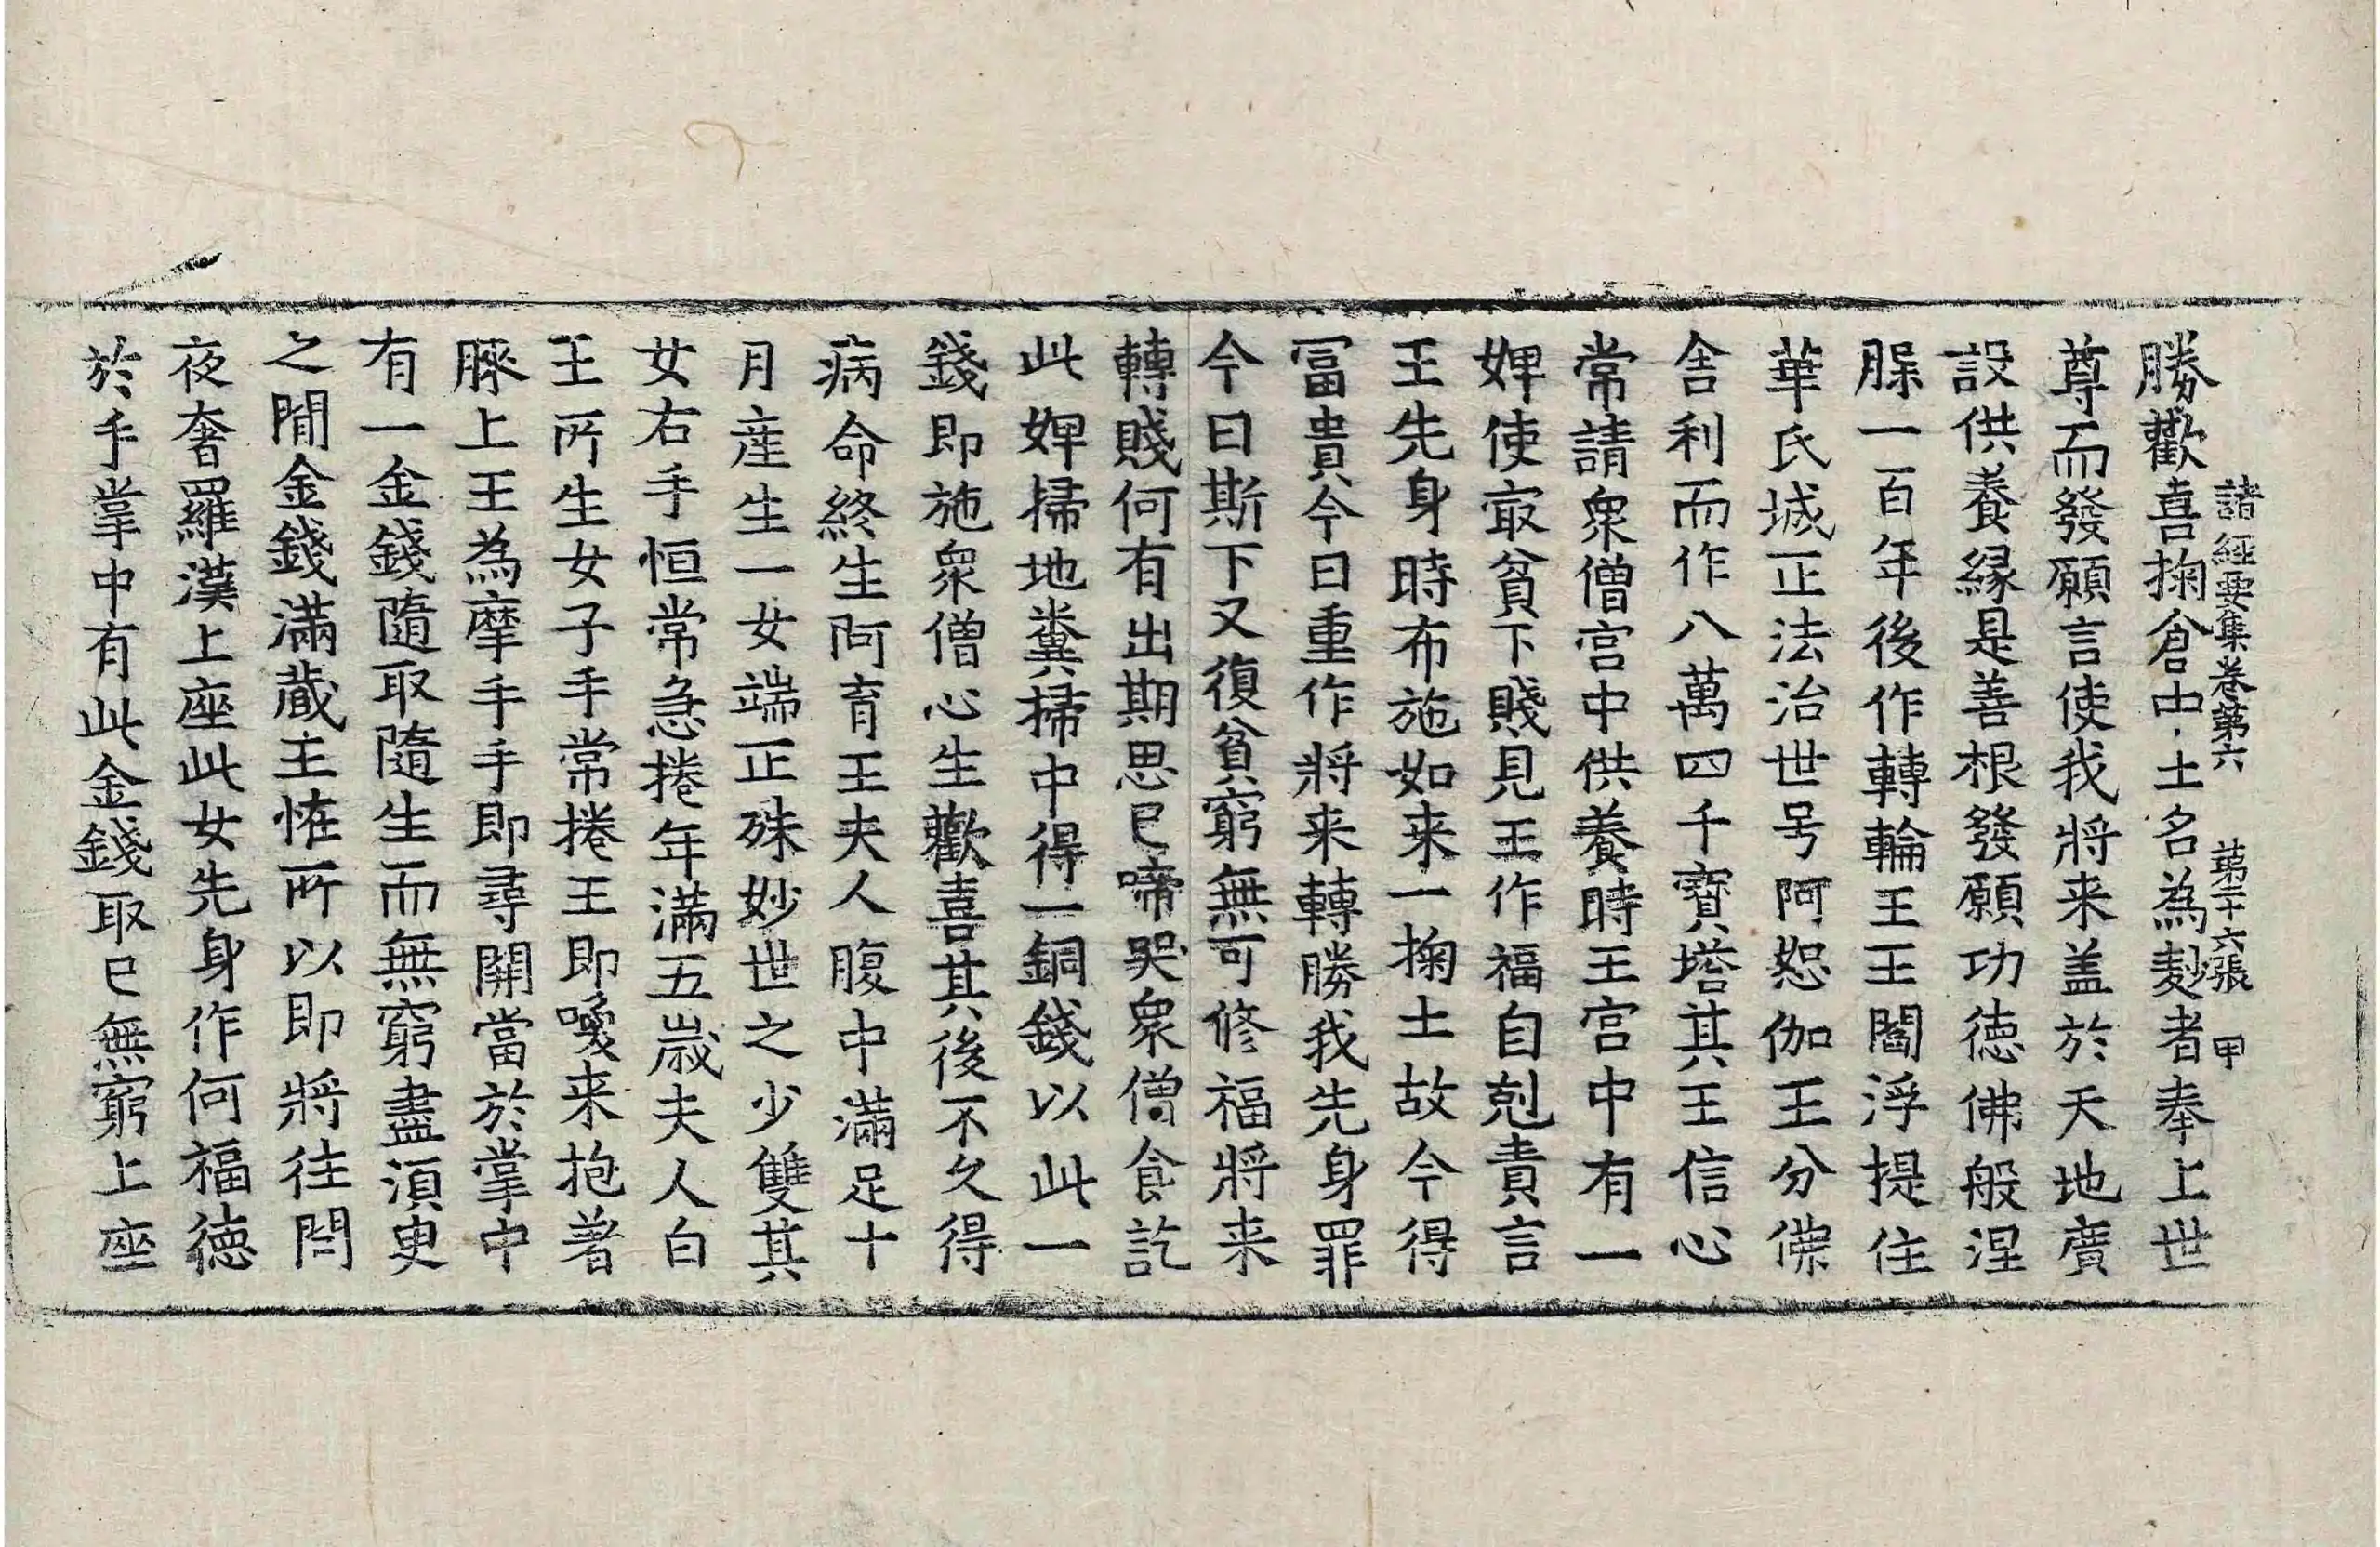 諸經要集卷第六　第二十六張　甲
勝歡喜掬倉中土名為麨者奉上世
尊而發願言使我將来盖於天地廣
設供養緣是善根發願功德佛般涅
腂一百年後作轉輪王王閻浮提住
華氏城正法治世号阿恕伽王分佛
舍利而作八萬四千寶塔其王信心
常請衆僧宮中供養時王宮中有一
婢使㝡貧下賤見王作福自剋責言
王先身時布施如来一掬土故今得
冨貴今日重作將来轉勝我先身罪
今日斯下又復貧窮無可修福將来
轉賤何有出期思已啼哭衆僧食訖
此婢掃地糞掃中得一銅錢以此一
錢即施衆僧心生歡喜其後不久得
病命終生阿育王夫人腹中滿足十
月産生一女端正殊妙世之少雙其
女右手恒常急捲年滿五歲夫人白
王所生女子手常捲王即喚来抱著
膝上王為摩手手即尋開當於掌中
有一金錢隨取隨生而無窮盡湏臾
之閒金錢滿蔵王恠所以即將往問
夜奢羅漢上座此女先身作何福德
於手掌中有此金錢取已無窮上座